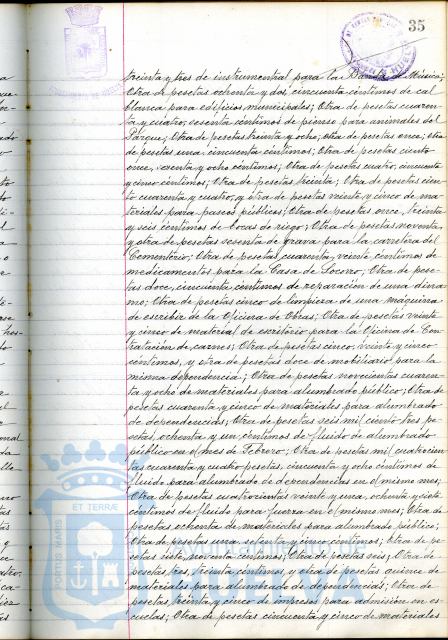 35
treinta y tres de instrumental para la Banda de Música;
Otra de pesetas ochenta y dos, cincuenta céntimos de cal
blanca para edificios municipales; Otra de pesetas cuaren-
ta y cuatro, sesenta céntimos de pienso para animales del
Parque; Otra de pesetas treinta y ocho; Otra de pesetas once; Otra
de pesetas una, cincuenta céntimos; Otra de pesetas ciento
once, y ocho céntimos; Otra de pesetas cuatro, cincuenta
y cinco céntimos; Otra de pesetas, treinta; Otra de pesetas cien-
to cuarenta y cuatro, y otra de pesetas veinte y cinco de ma-
teriales para paseos públicos; Otra de pesetas once, treinta
y seis céntimos de bocas de riego; Otra de pesetas noventa,
y otra de pesetas sesenta de grava para la carretera del
Cementerio; Otra de pesetas cuarenta, veinte céntimos de
medicamentos para la Casa de Socorro; Otra de pese-
tas doce, cincuenta céntimos de reparación de una dína-
mo; Otra de pesetas cinco de limpieza de una máquina
de escribir de la Oficina de Obras; Otra de pesetas veinte
y cinco de material de escritorio para la Oficina de Con-
tratación de carnes; Otra de pesetas cinco, veinte y cinco
céntimos, y otra de pesetas doce de mobiliario para la
misma dependencia; Otra de pesetas novecientas cuaren-
ta y ocho de materiales para alumbrado público; Otra de
pesetas cuarenta y cinco de materiales para alumbrado
de dependencias; Otra de pesetas seis mil ciento tres pe-
setas, ochenta y un céntimos de fluido de alumbrado
público en el mes de Febrero; Otra de pesetas mil cuatrocien-
tas cuarenta y cuatro pesetas, cincuenta y ocho céntimos de
fluido para alumbrado de dependencias en el mismo mes;
Otra de pesetas cuatrocientas veinte y una, ochenta y siete
céntimos de fluido para fuerza en el mismo mes; Otra de
pesetas ochenta de materiales para alumbrado público;
Otra de pesetas una, setenta y cinco céntimos; Otra de pe-
setas siete, noventa céntimos; Otra de pesetas seis; Otra de
pesetas, tres, treinta céntimos, y otra de pesetas quince de
materiales para alumbrado de dependencias; Otra de
pesetas, treinta y cinco de impresos para admisión en es-
cuelas; Otra de pesetas cincuenta y cinco de materiales
PORTUS MARIS ET TERRÆ
HUELVA